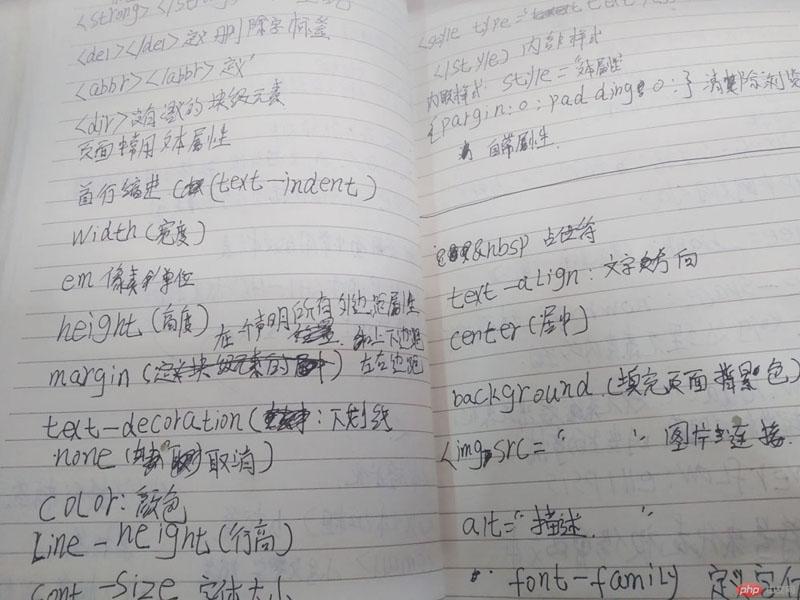 <strong></strong>
<del></del>定义删除字标签
<abbr></abbr>定义
<dir>没有的块级元素
页面常用文本属性
首行缩进 (text-indent)
width(宽度)
em 像素单位
height(高度)
在一个声明所有外边距属性
上下边距
margin(定义块级元素的居中) 左右边距
text-decoration( :下划线
none( 取消)
color:颜色
Line-height(行高)
font-size 字体大小
<style type="text
</style>内部样式
内联样式 style="文本属性"
{pargin:0;padding:0;}清除浏览
自带属性.
&nbsp 占位符
text-align:文字方向
center(居中)
background(填充页面背景色)
<img src=" " 图片连接.
alt="描述. "
font-family 定义字体
php